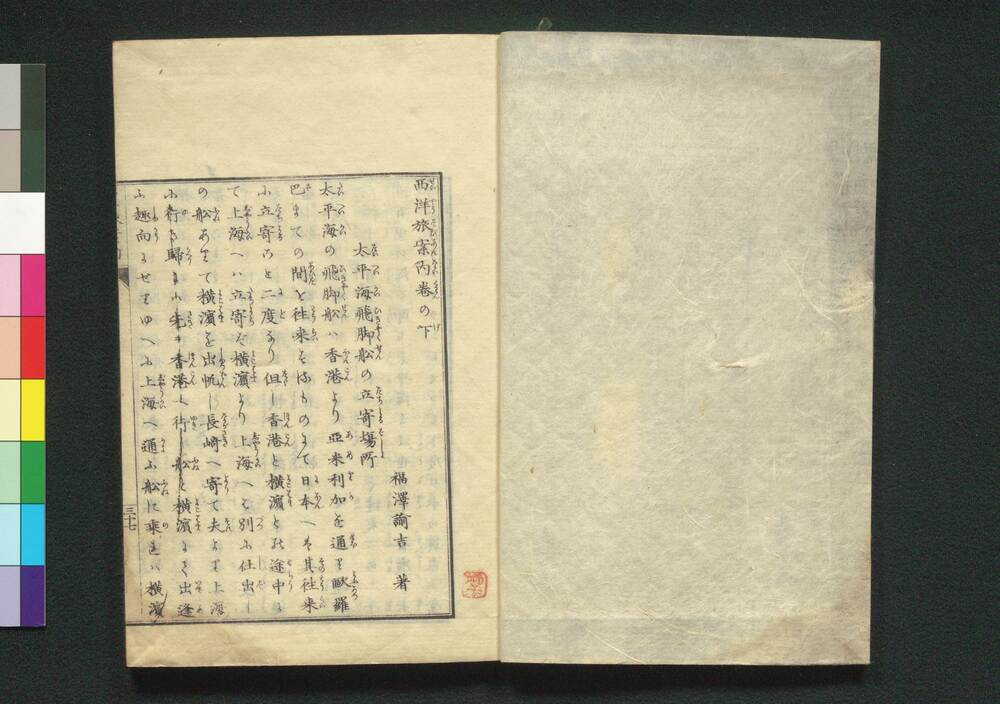 西洋旅案内巻の下
福澤諭吉著
太平海飛脚舩の立寄場所
太平海の飛脚舩ハ香港より亞米利加を通り歐羅
巴までの間を往来するものにて日本へも其往来
に立寄ること二度なり但し香港と横濱との途中に
て上海へハ立寄らず横濱より上海へハ別に仕出し
の舩ありて横濱を出帆し長崎へ寄て夫より上海
に行き歸りにも先キ香港へ行し舩と横濱にて出逢
ふ趣向にせりゆへに上海へ通ふ舩に乗れバ横濱
三十七